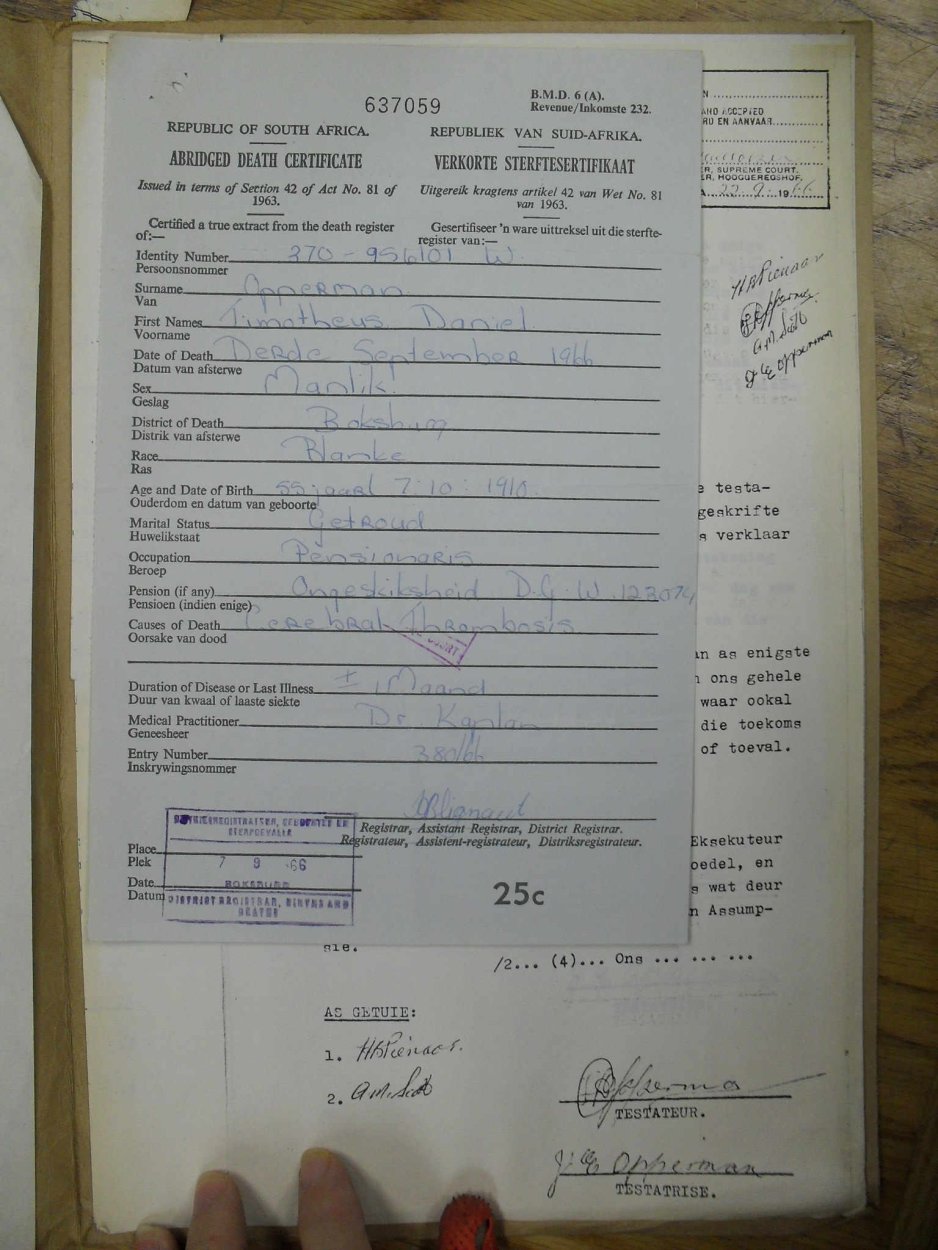 637059
B.M.D. 6 (A).
Revenue/Inkomste 232.
REPUBLIC OF SOUTH AFRICA.
REPUBLIEK VAN SUID-AFRIKA.
ABRIDGED DEATH CERTIFICATE
VERKORTE STERFTESERTIFIKAAT
Issued in terms of Section 42 of Act No. 81 of
1963.
Uitgereik kragtens artikel 42 van Wet No. 81
van 1963.
Certified a true extract from the death register
of:—
Gesertifiseer 'n ware uittreksel uit die sterfte-
register van:—
Identity Number 370-956101 W
Persoonsnommer
Surname Opperman
Van
First Names Timotheus Daniel
Voorname
Date of Death Derde September 1966
Datum van afsterwe
Sex Manlik
Geslag
District of Death Boksburg
Distrik van afsterwe
Race Blanke
Ras
Age and Date of Birth 55 jaar 7:10:1910
Ouderdom en datum van geboorte
Marital Status Getroud
Huwelikstaat
Occupation Pensionaris
Beroep
Pension (if any) Ongeskiksheid D.G.W.
Pensioen (indien enige)
Causes of Death Cerebral Thrombosis
Oorsake van dood
Duration of Disease or Last Illness ± 1 Maand
Duur van kwaal of laaste siekte
Medical Practitioner Dr. Kaplan
Geneesheer
Entry Number 380/66
Inskrywingsnommer
Registrar, Assistant Registrar, District Registrar.
Registrateur, Assistent-registrateur, Distriksregistrateur.
DISTRIKREGISTRATEUR, GEBOORTES EN
STERFGEVALLE
Place
Plek
7 9 -66
Date
BOKSBURG
Datum
DISTRICT REGISTRAR, BIRTHS AND
DEATHS
25c
AND ACCEPTED
EN AANVAAR
SUPREME COURT.
HOOGGEREGSHOF.
22-9-1966
HBPienaar
Opperman
A.M. Scott
Opperman
e testa-
geskrifte
s verklaar
an as enigste
ons gehele
waar ookal
die toekoms
of toeval.
Eksekuteur
oedel, en
s wat deur
n Assump-
sie.
/2... (4)... Ons ... ... ...
AS GETUIE:
1. HBPienaar.
2. A.M. Scott
Opperman
TESTATEUR.
Opperman
TESTATRISE.